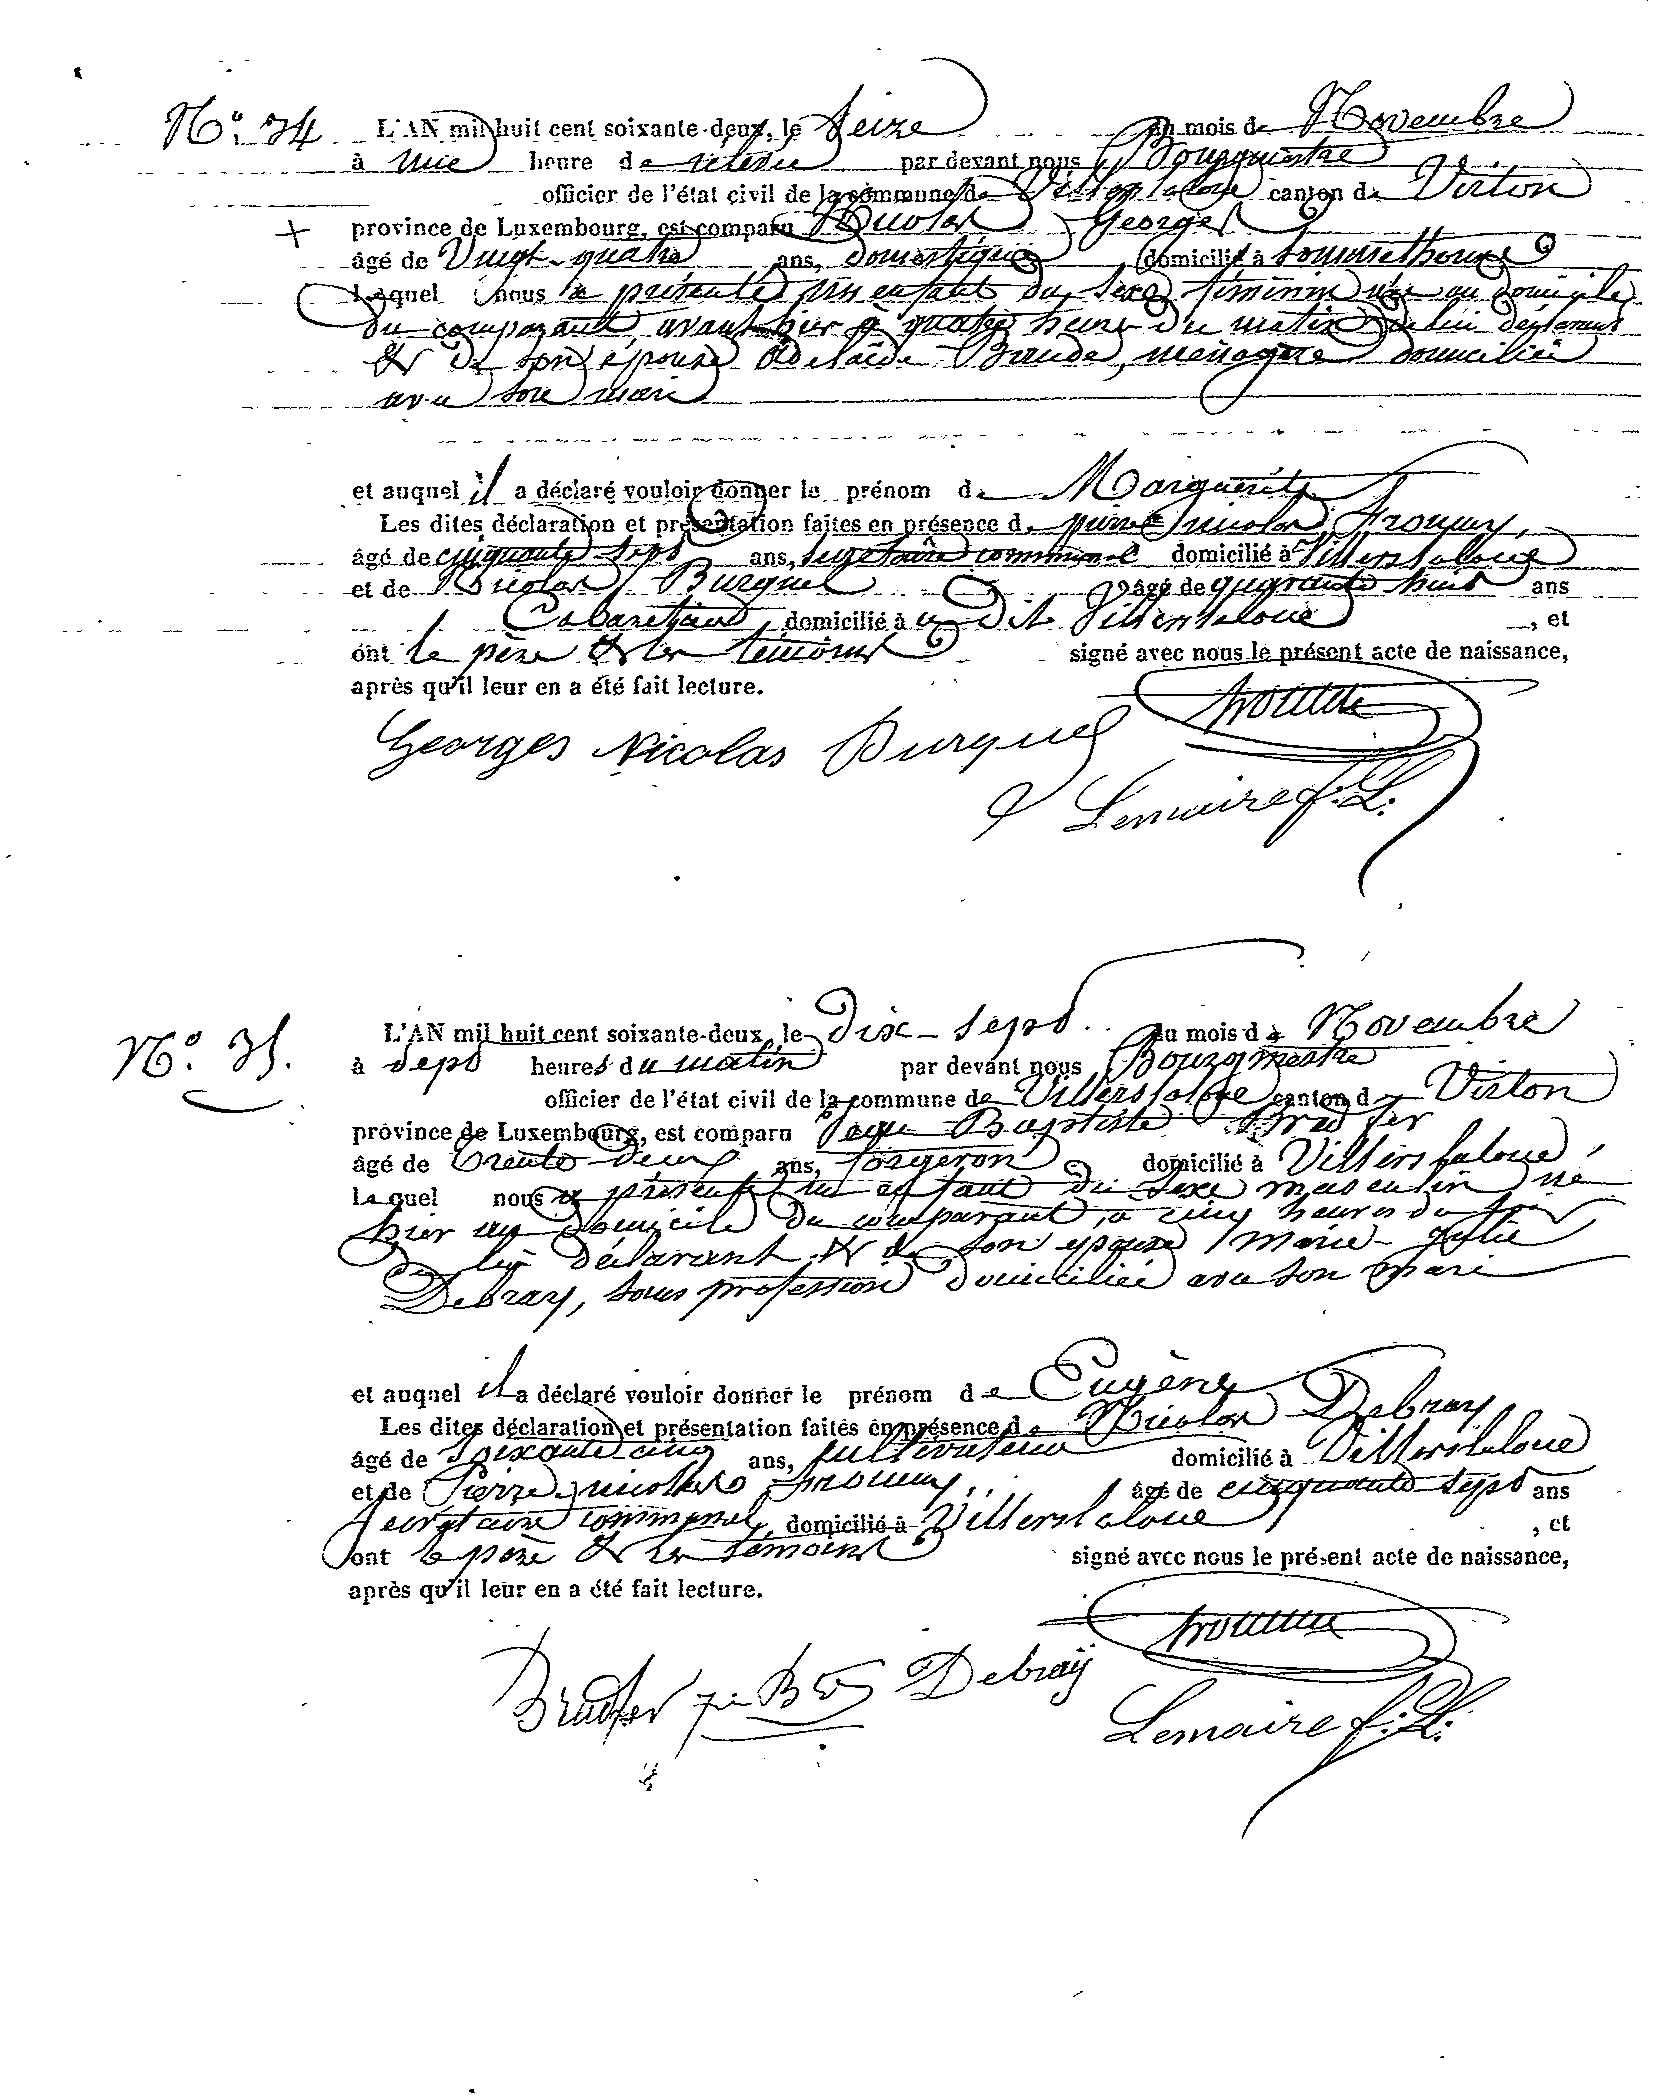 N.° 34 L'AN mil huit cent soixante-deux, le Seize du mois de Novembre
à une heure de relevée par devant nous Bourgmestre
officier de l'état civil de la commune de Villers la loue canton de Virton
province de Luxembourg, est comparu Nicolas Georges
âgé de Vingt-quatre ans, domestique domicilié à Sommethonne
Lequel nous a présenté un enfant du sexe féminin née au domicile
du comparant, avant hier à quatre heures du matin de lui déclarant
& de son épouse Adelaïde Baude, ménagère domiciliée
avec son mari
et auquel il a déclaré vouloir donner le prénom de Marguerite
Les dites déclaration et présentation faites en présence de pierre nicolas
âgé de cinquante sept ans, secrétaire communal domicilié à Villers la loue
et de Nicolas Burquel âgé de quarante huit ans
Cabaretier domicilié à u dit Villers la loue , et
ont le père & les témoins signé avec nous le présent acte de naissance,
après qu'il leur en a été fait lecture.
Georges Nicolas Burquel
Lemaire f: L:
N.° 35. L'AN mil huit cent soixante-deux, le dix-sept du mois de Novembre
à sept heures du matin par devant nous Bourgmestre
officier de l'état civil de la commune de Villers la loue canton de Virton
province de Luxembourg, est comparu Jean Baptiste Bradfer
âgé de trente deux ans, forgeron domicilié à Villers la loue,
lequel nous a présenté un enfant du sexe masculin né
hier au domicile du comparant, à cinq heures du soir
de lui déclarant & de son épouse marie-julie
Debray, sans profession domiciliée avec son mari
et auquel il a déclaré vouloir donner le prénom de Eugène
Les dites déclaration et présentation faites en présence de Nicolas Debray,
âgé de soixante cinq ans, cultivateur domicilié à Villers la loue
et de Pierre-nicolas âgé de cinquante sept ans
secrétaire communal, domicilié à Villers la loue , et
ont le père & les témoins signé avec nous le présent acte de naissance,
après qu'il leur en a été fait lecture.
Bradfer Debray
Lemaire f: L: